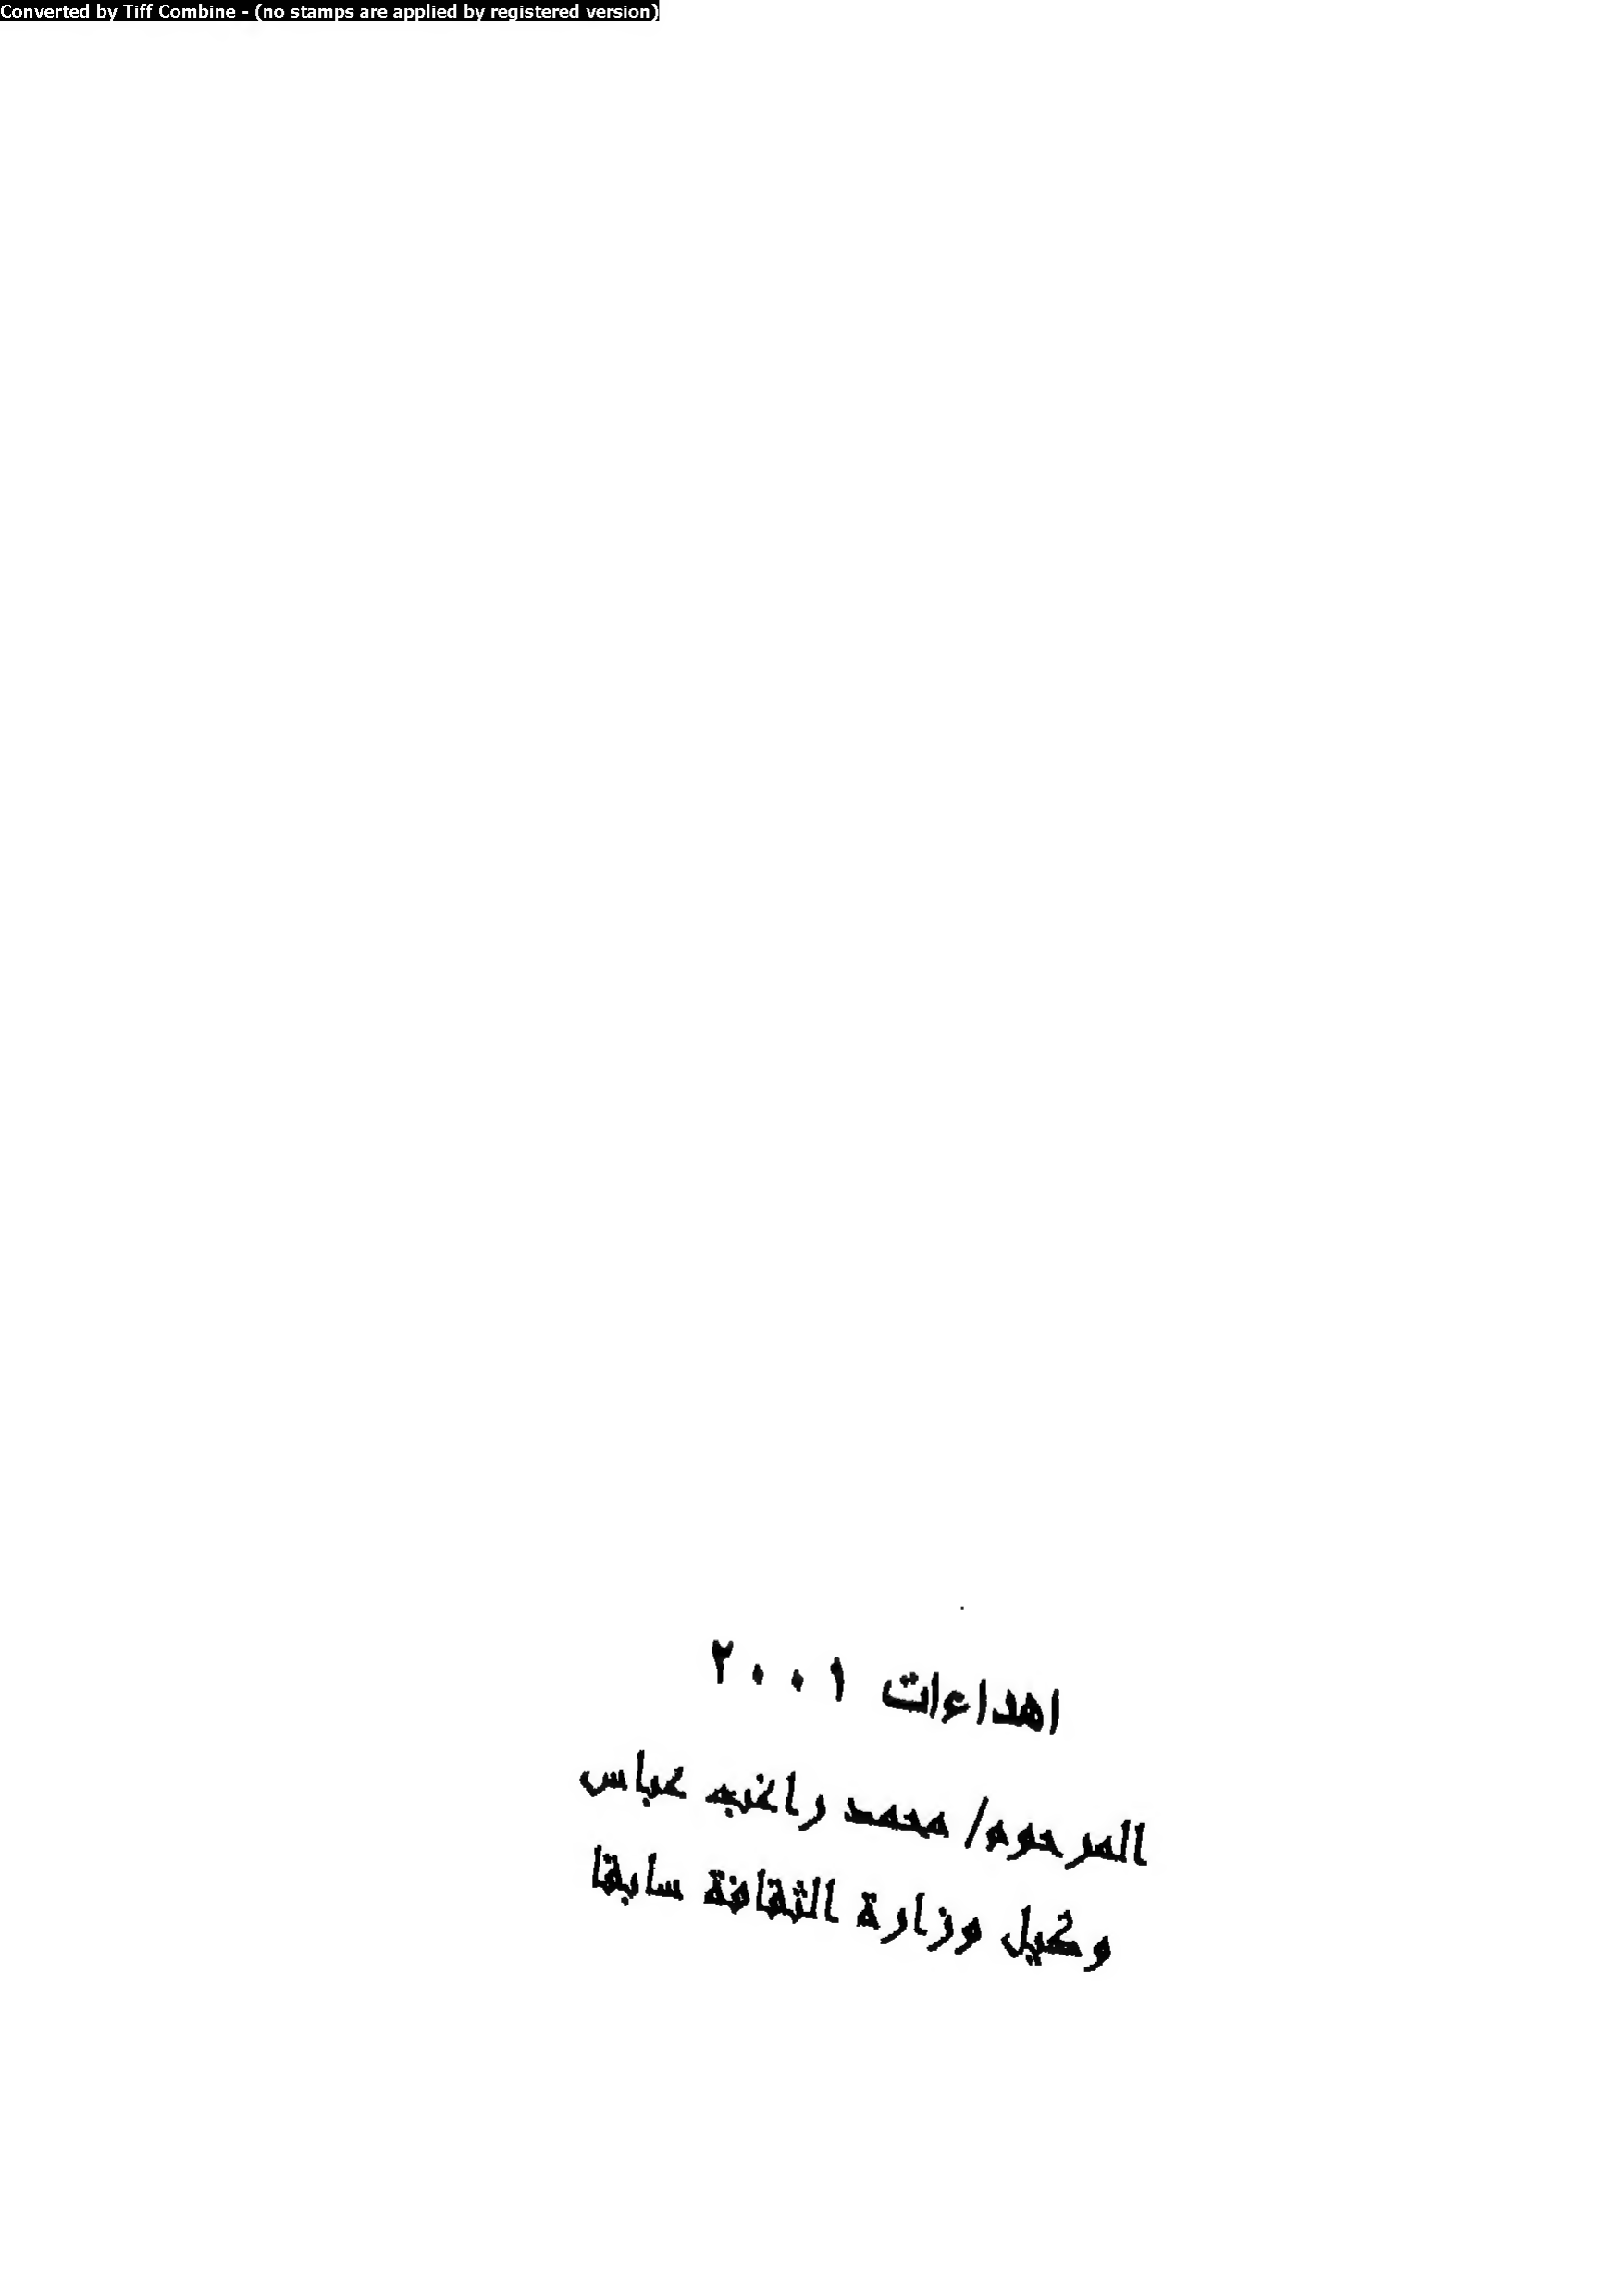 Converted by Tiff Combine - (no stamps are applied by registered version)
اهداءات ٢٠٠١
المرحوم/ محمد راغب عباس
وكيل وزارة الثقافة سابقا